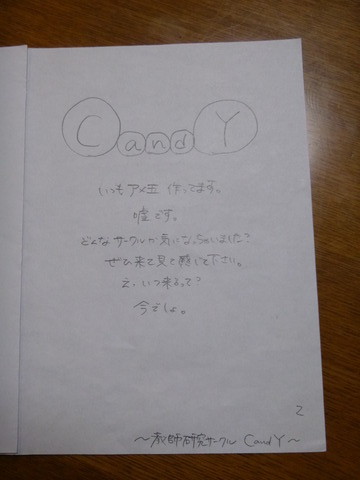 CandY
いつもアメ玉 作ってます。
嘘です。
どんなサークルか気になっちゃいました?
ぜひ来て見て感じて下さい。
え、いつ来るって?
今でしょ。
2
～教師研究サークル CandY～